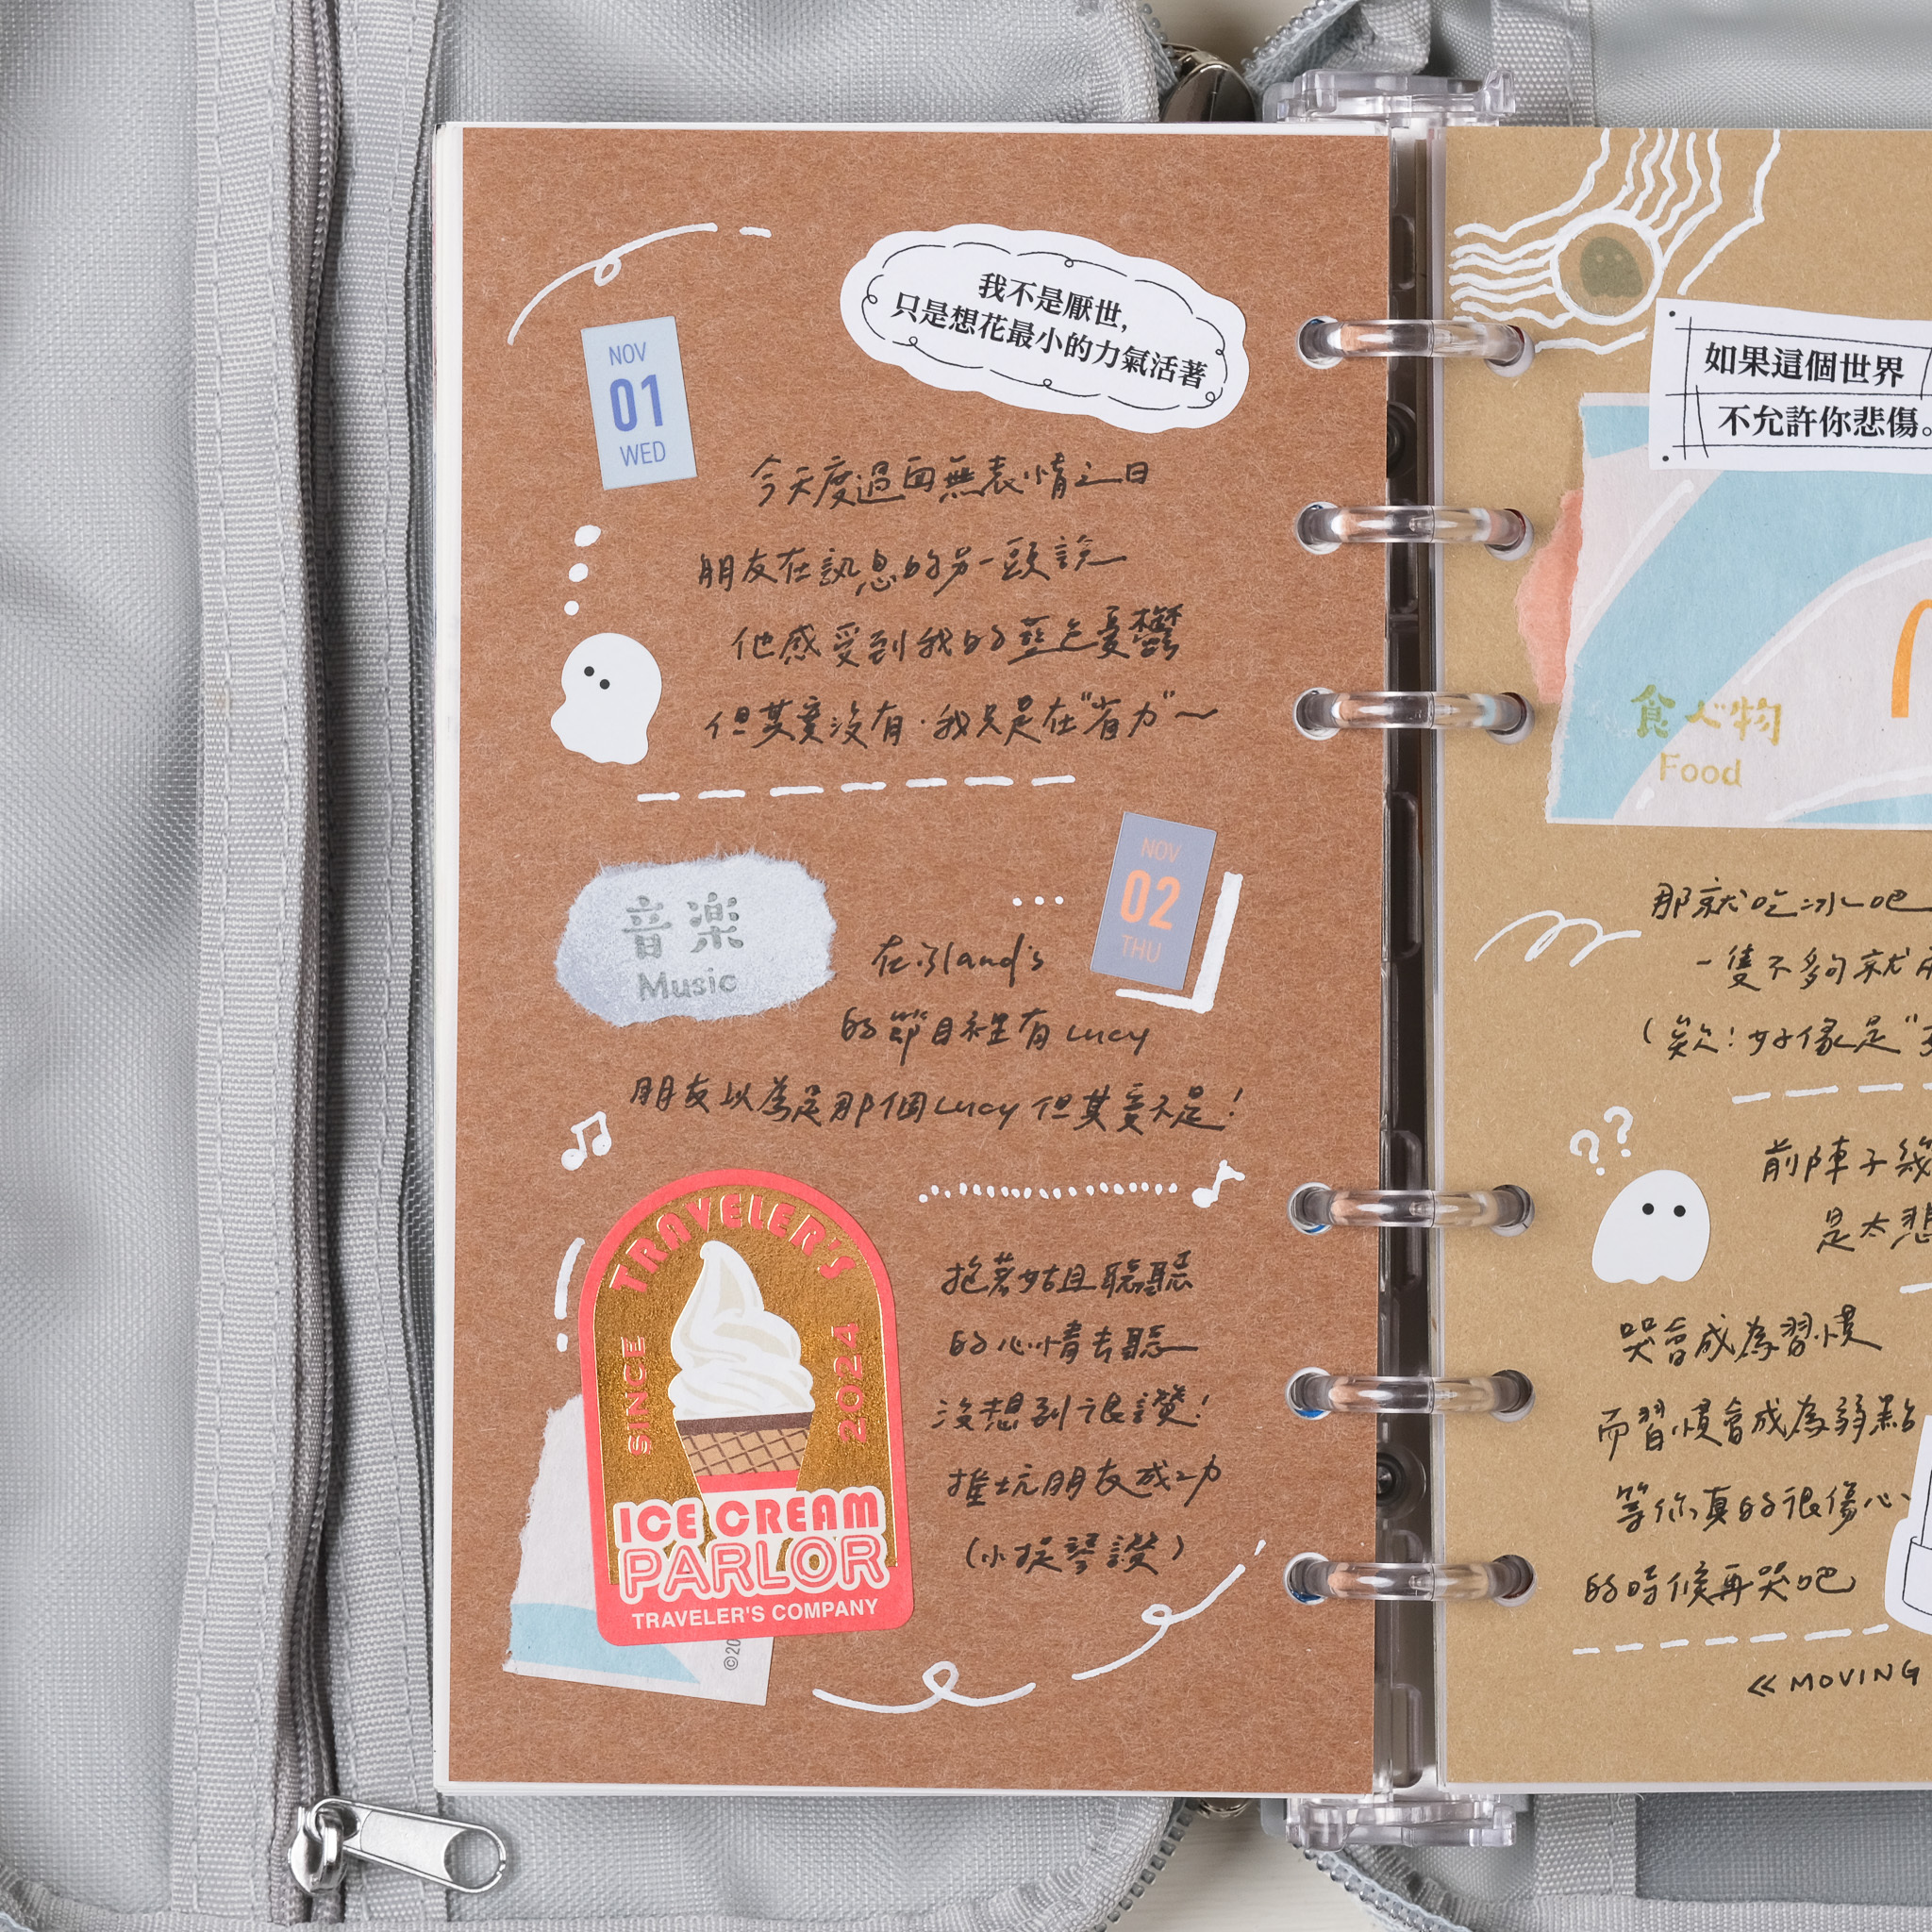 我不是厭世,
只是想花最小的力氣活著
NOV
01
WED
今天度過面無表情之日
朋友在訊息的另一頭說
他感受到我的藍色憂鬱
但其實沒有·我只是在"省力"~
音楽
Music
NOV
02
THU
在island's
的節目裡有Lucy
朋友以為是那個Lucy但其實不是!
TRAVELER'S
SINCE
2024
ICE CREAM
PARLOR
TRAVELER'S COMPANY
©20
抱著姑且聽聽
的心情去聽
沒想到很讚!
推坑朋友成功
(小提琴讚)
如果這個世界
不允許你悲傷。
食べ物
Food
那就吃冰吧
一隻不夠就
(欸!好像是"
??
前陣子
是太悲
哭會成為習慣
而習慣會成為弱點
等你真的很傷心
的時候再哭吧
<< MOVING